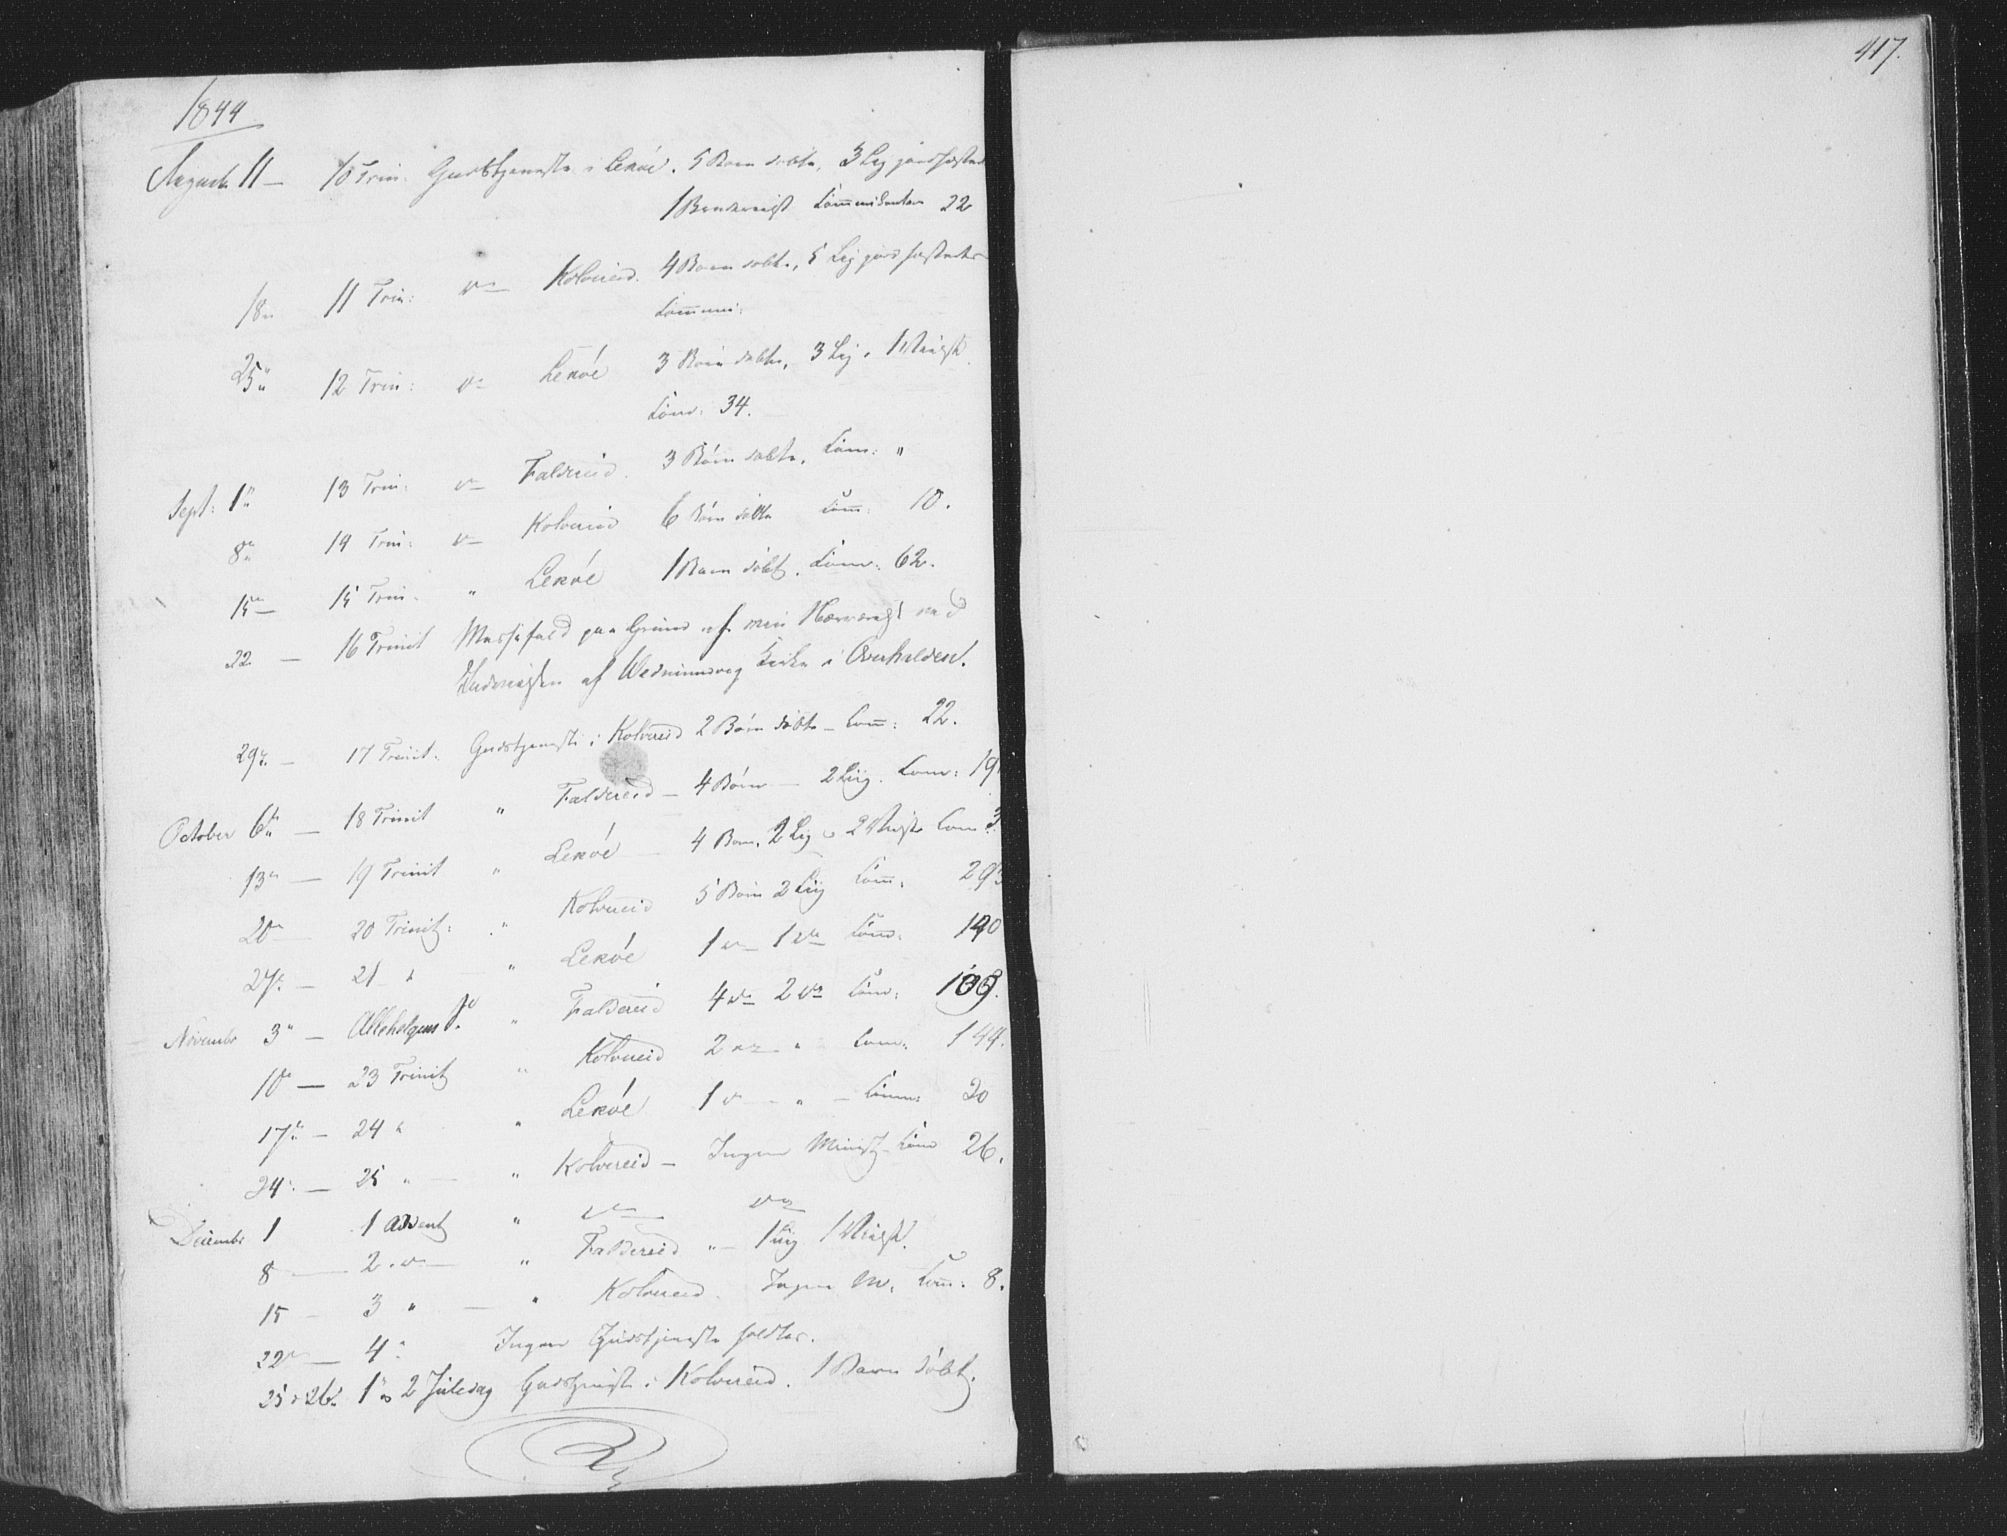 417.
1844
August 11 — 10 Trin: Gudstjeneste i Lekøe. 5 Børn døbte, 3 Lig jordfæstede
1 Brudevigt Communikanter 22
18de 11 Trin: do Kolvereid. 4 Børn døbte, 5 Lig jordfæstede
Commun:
25de 12 Trin: do Lekøe 3 Børn døbte, 3 Lig, 1 Vielse
Com: 34.
Sept: 1ste 13 Trin: do Foldereid. 3 Børn døbte. Com: "
8de 14 Trin: do Kolvereid 6 Børn døbte Com: 10.
15de 15 Trin. " Lekøe 1 Barn døbt. Com: 62.
22 — 16 Trinit Messefald paa Grund af min Nærværelse ved
Indvielsen af Kirke i Overhalden.
29de — 17 Trinit. Gudstjeneste i Kolvereid 2 Børn døbte – Com: 22.
October 6te — 18 Trinit " Foldereid — 4 Børn — 2 Liig. Com: 19
13de — 19 Trinit " Lekøe — 4 Børn, 2 Lig 2 Com: 3
20de — 20 Trinit: " Kolvereid 5 Børn 2 Liig Com: 293
27de — 21 " — " Lekøe 1 do 1 do Com: 190
November 3de — Allehelgens F. " Foldereid 4 do 2 do Com: 109.
10de — 23 Trinit " Kolvereid 2 do " Com: 144.
17de — 24 " " Lekøe 1 do " — Com: 20
24de — 25 " — " Kolvereid — Ingen Minist. Com 26.
December 1 1 Advent " do do
8 — 2. do — " Foldereid " — 1 Liig 1 Vielse.
15 — 3 " — " Kolvereid. Ingen M. Com: 8.
22de — 4 " Ingen Gudstjeneste holdtes.
25 & 26de 1 & 2 Juledag Gudstjeneste i Kolvereid. 1 Barn døbt.